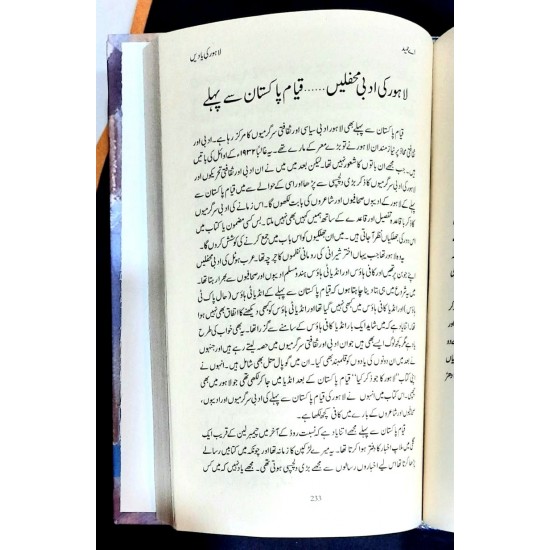 لاہور کی یادیں
اے حمید
لاہور کی ادبی محفلیں...... قیام پاکستان سے پہلے
قیام پاکستان سے پہلے بھی لاہور ادبی سیاسی اور ثقافتی سرگرمیوں کا مرکز رہا ہے۔ ادبی اور
محاذ پر نیاز مندان لاہور نے تو بڑے معرکے مارے تھے۔ یہ غالباً ۱۹۳۲ء کے اوائل کی باتیں
ہیں۔ جب مجھے ان باتوں کا شعور نہیں تھا۔ لیکن بعد میں میں نے ان ادبی اور ثقافتی تحریکوں اور
لاہور کی ادبی سرگرمیوں کا ذکر بڑی دلچسپی سے پڑھا اور اسی کے حوالے سے میں قیام پاکستان سے
پہلے کے لاہور کے ادیبوں صحافیوں اور شاعروں کی بابت لکھوں گا۔ اس زمانے کی ادبی سرگرمیوں
کا باقاعدہ تفصیل اور قاعدے کے ساتھ ہمیں کہیں بھی نہیں ملتا۔ بس کسی مضمون یا کتاب میں
اس دور کی جھلکیاں نظر آ جاتی ہیں۔ میں ان جھلکیوں کو اس باب میں جمع کرنے کی کوشش کروں گا۔
یہ وہ لاہور تھا جب یہاں اختر شیرانی کی رومانی نظموں کا چرچہ تھا۔ عرب ہوٹل کی ادبی محفلیں
اپنے جوبن پر تھیں اور کافی ہاؤس اور انڈیا ٹی ہاؤس ہندو مسلم ادیبوں اور صحافیوں سے بھرا رہتا تھا۔
میں یہ شروع میں ہی بتا دینا چاہتا ہوں کہ قیام پاکستان سے پہلے کے انڈیا ٹی ہاؤس (حال پاک ٹی
ہاؤس) اور کافی ہاؤس میں کبھی نہیں گیا تھا۔ انڈیا ٹی ہاؤس کو کبھی دیکھنے کا اتفاق بھی نہیں ہوا تھا
فقط اتنا یاد ہے کہ میں شاید ایک بار انڈیا کافی ہاؤس کے سامنے سے گزرا تھا۔ یہ بھی خواب کی طرح
یاد ہے۔ کچھ لوگ ایسے بھی ہیں جو ان ادبی اور ثقافتی سرگرمیوں میں حصہ لیتے رہے ہیں اور جنہوں
نے بعد میں ان دونوں کی یادوں کو قلمبند بھی کیا۔ ان میں گوپال متل بھی شامل ہیں۔ انہوں نے
اپنی کتاب ”لاہور کا جو ذکر کیا“ قیام پاکستان کے بعد انڈیا میں جا کر لکھی تھی جو لاہور میں بھی
چھپی۔ اس کتاب میں انہوں نے لاہور کی قیام پاکستان سے پہلے کی ادبی سرگرمیوں اور ادیبوں،
صحافیوں اور شاعروں کے بارے میں کافی کچھ لکھا ہے۔
قیام پاکستان سے پہلے مجھے اتنا یاد ہے کہ نسبت روڈ کے آخر میں چیمبرلین کے قریب ایک
گلی میں ملاپ اخبار کا دفتر ہوا کرتا تھا۔ یہ میرے لڑکپن کا زمانہ تھا اور چونکہ میں کتابیں رسالے
پڑھا کرتا تھا اس لیے اخباروں رسالوں سے مجھے بڑی دلچسپی ہوتی تھی۔ مجھے یاد نہیں کہ میں کس
233